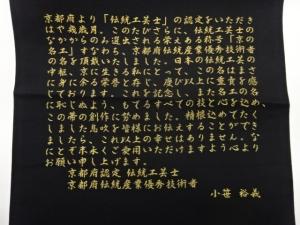 京都府より「伝統工芸士」の認定をいただき
はや幾歳月。このたびさらに、伝統工芸士の
なかからのみ選出される栄えある称号「京の
名工」すなわち、京都府伝統産業優秀技術者
の名を頂戴いたしました。日本の伝統工芸の
中枢、京に生きる私にとって、この名はまさ
に身に余る栄誉と存じ、歓びとともに重責を感
じております。これを記念し、また名工の名
に恥じぬよう、もてるすべての技と心を込め、
この帯の創作に努めました。精根込めてたく
しました息吹を皆様にお伝えすることができ
ましたら、これに勝る幸せはありません。な
にとぞ末永くご愛用いただけますよう心より
お願い申し上げます。
京都府認定 伝統工芸士
京都府伝統産業優秀技術者
小笹 裕義